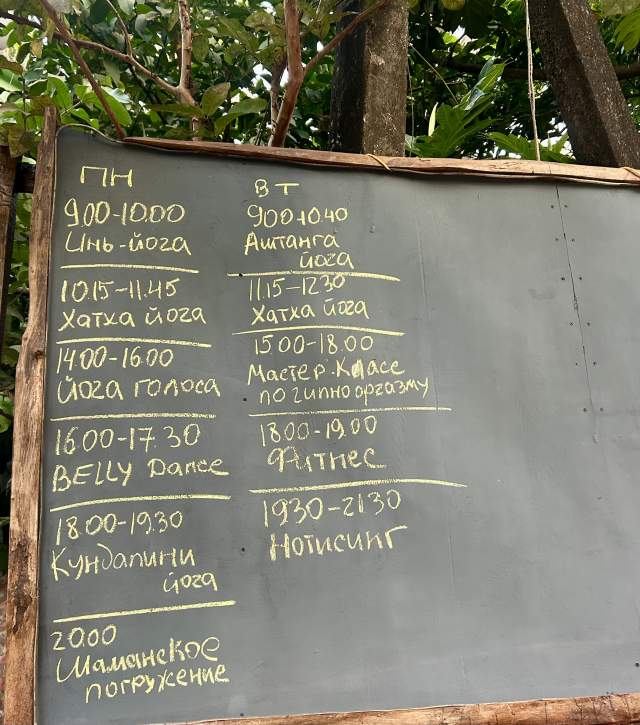 ПН
9.00-10.00
Инь-йога
10.15-11.45
Хатха йога
14.00-16.00
Йога голоса
16.00-17.30
BELLY Dance
18.00-19.30
Кундалини
йога
20.00
Шаманское
погружение
ВТ
9.00-10.40
Аштанга
йога
11.15-12.30
Хатха йога
15.00-18.00
Мастер-Класс
по гипнооргазму
18.00-19.00
Фитнес
19.30-21.30
Нотисинг